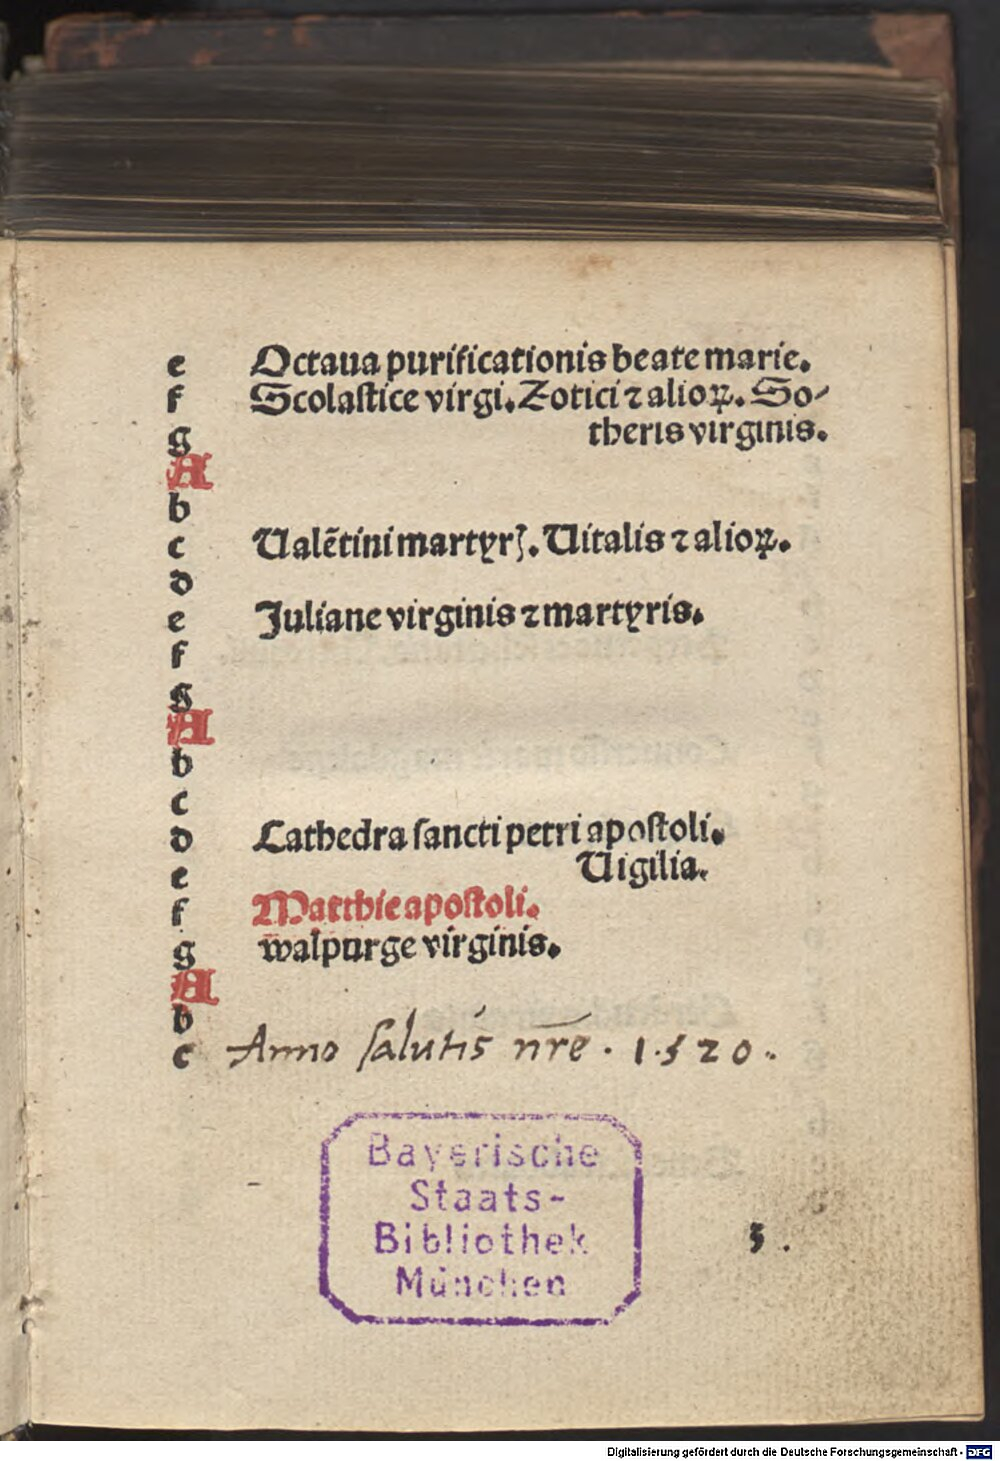 e Octaua purificationis beate marie.
f Scolastice virgi. Zotici ⁊ alioꝝ. So⸗
theris virginis.
g
A
b
c Ualētini martyrꝭ. Uitalis ⁊ alioꝝ.
d
e Juliane virginis ⁊ martyris.
f
g
A
b
c
d Cathedra sancti petri apostoli.
e Uigilia.
f Matthie apostoli.
g walpurge virginis.
A
b
c Anno salutis nr̄e · 1·520·
Bayerische
Staats-
Bibliothek
München
3 .
Digitalisierung gefördert durch die Deutsche Forschungsgemeinschaft - DFG